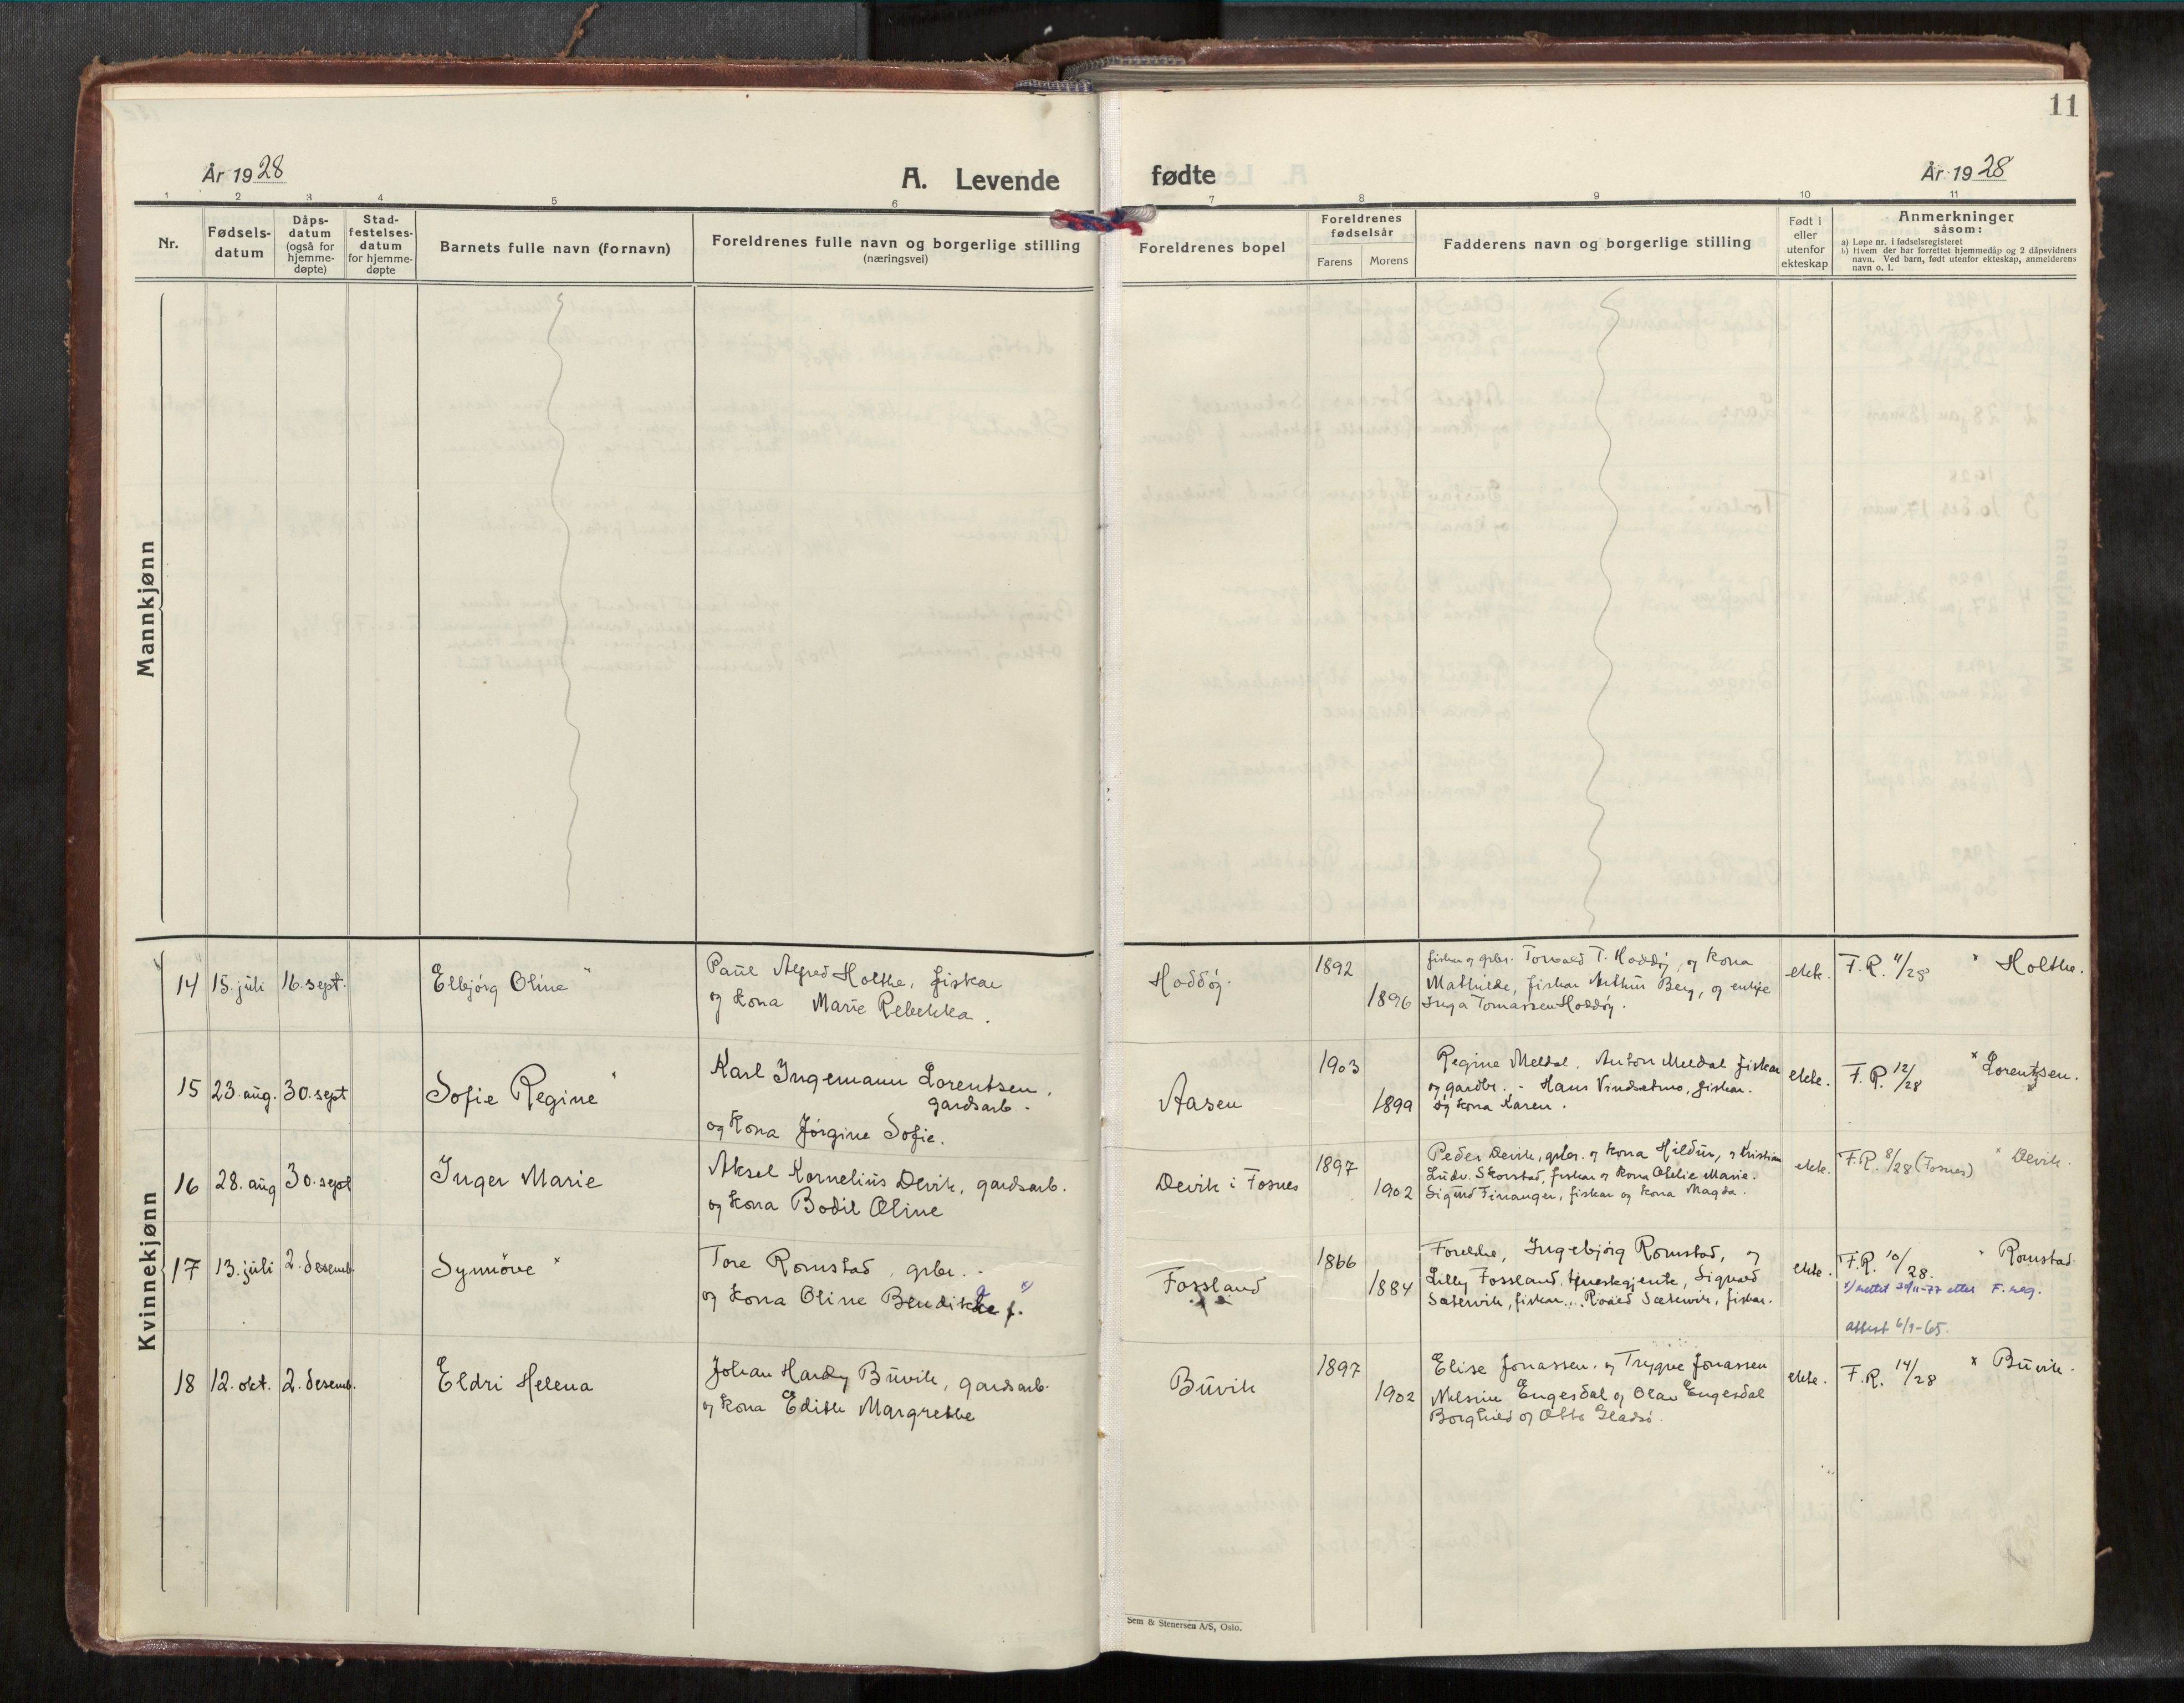 11
År 1928
A. Levende
fødte
År 1928
1 2 3 4 5 6 7 8 9 10 11
Nr.
Fødsels-
datum
Dåps-
datum
(også for
hjemme-
døpte)
Stad-
festelses-
datum
for hjemme-
døpte
Barnets fulle navn (fornavn)
Foreldrenes fulle navn og borgerlige stilling
(næringsvei)
Foreldrenes bopel
Foreldrenes
fødselsår
Farens Morens
Fadderens navn og borgerlige stilling
Født i
eller
utenfor
ekteskap
Anmerkninger
såsom:
a) Løpe nr. i fødselsregisteret
b) Hvem der har forrettet hjemmedåp og 2 dåpsvidners
navn. Ved barn, født utenfor ekteskap, anmelderens
navn o. l.
Mannkjønn
Kvinnekjønn
14 15. juli 16. sept. Elbjörg Oline
Paul Alfred Holthe, fiskar
og kona Marie Rebekka.
Hoddöy
1892
1896
fiskar og grbr. Torvald T. Hoddöy, og kona
Mathilde, fiskar Arthur Berg, og enkje
Inga Tomassen Hoddöy.
ekte. F.R. 11/28 x Holthe.
15 23. aug. 30. sept Sofie Regine
Karl Ingemann Lorentsen,
gardsarb.
og kona Jörgine Sofie.
Aasen
1903
1899
Regine Meldal, Anton Meldal fiskar
og gardbr. - Hans Vindsetmo, fiskar.
og kona Karen.
ekte. F.R. 12/28 x Lorentsen.
16 28. aug 30. sept Inger Marie
Aksel Kornelius Devik, gardsarb.
og kona Bodil Oline
Devik i Fosnes
1897
1902
Peder Devik, grbr. og kona Hildur, og Kristian
Ludv. Skorstad, fiskar og kona Ovelie Marie.
Sigurd Finanger, fiskar og kona Magda.
ekte. F.R. 8/28 (Fosnes) Devik.
17 13. juli 2. desemb. Synnöve
Tore Romstad, grbr. -
og kona Oline Bendikte f. x)
Fossland
1866
1884
Foreldre, Ingebjörg Romstad, og
Lilly Fossland, tjeneskjente, Sigvald
Sætervik, fiskar, Roald Sætervik, fiskar.
ekte. F.R. 10/28. Romstad
x) rettet 30/11-77 etter F. reg.
attest 6/9-65.
18 12. okt. 2. desemb. Eldri Helena
Johan Hardy Buvik, gardsarb.
og kona Edith Margrethe
Buvik
1897
1902
Elise Jonassen. og Trygve Jonassen
Nilsine Engesdal og Olav Engesdal
Borghild og Otto Gladsö.
ekte. F.R. 14/28 x Buvik.
Sem & Stenersen A/S, Oslo.